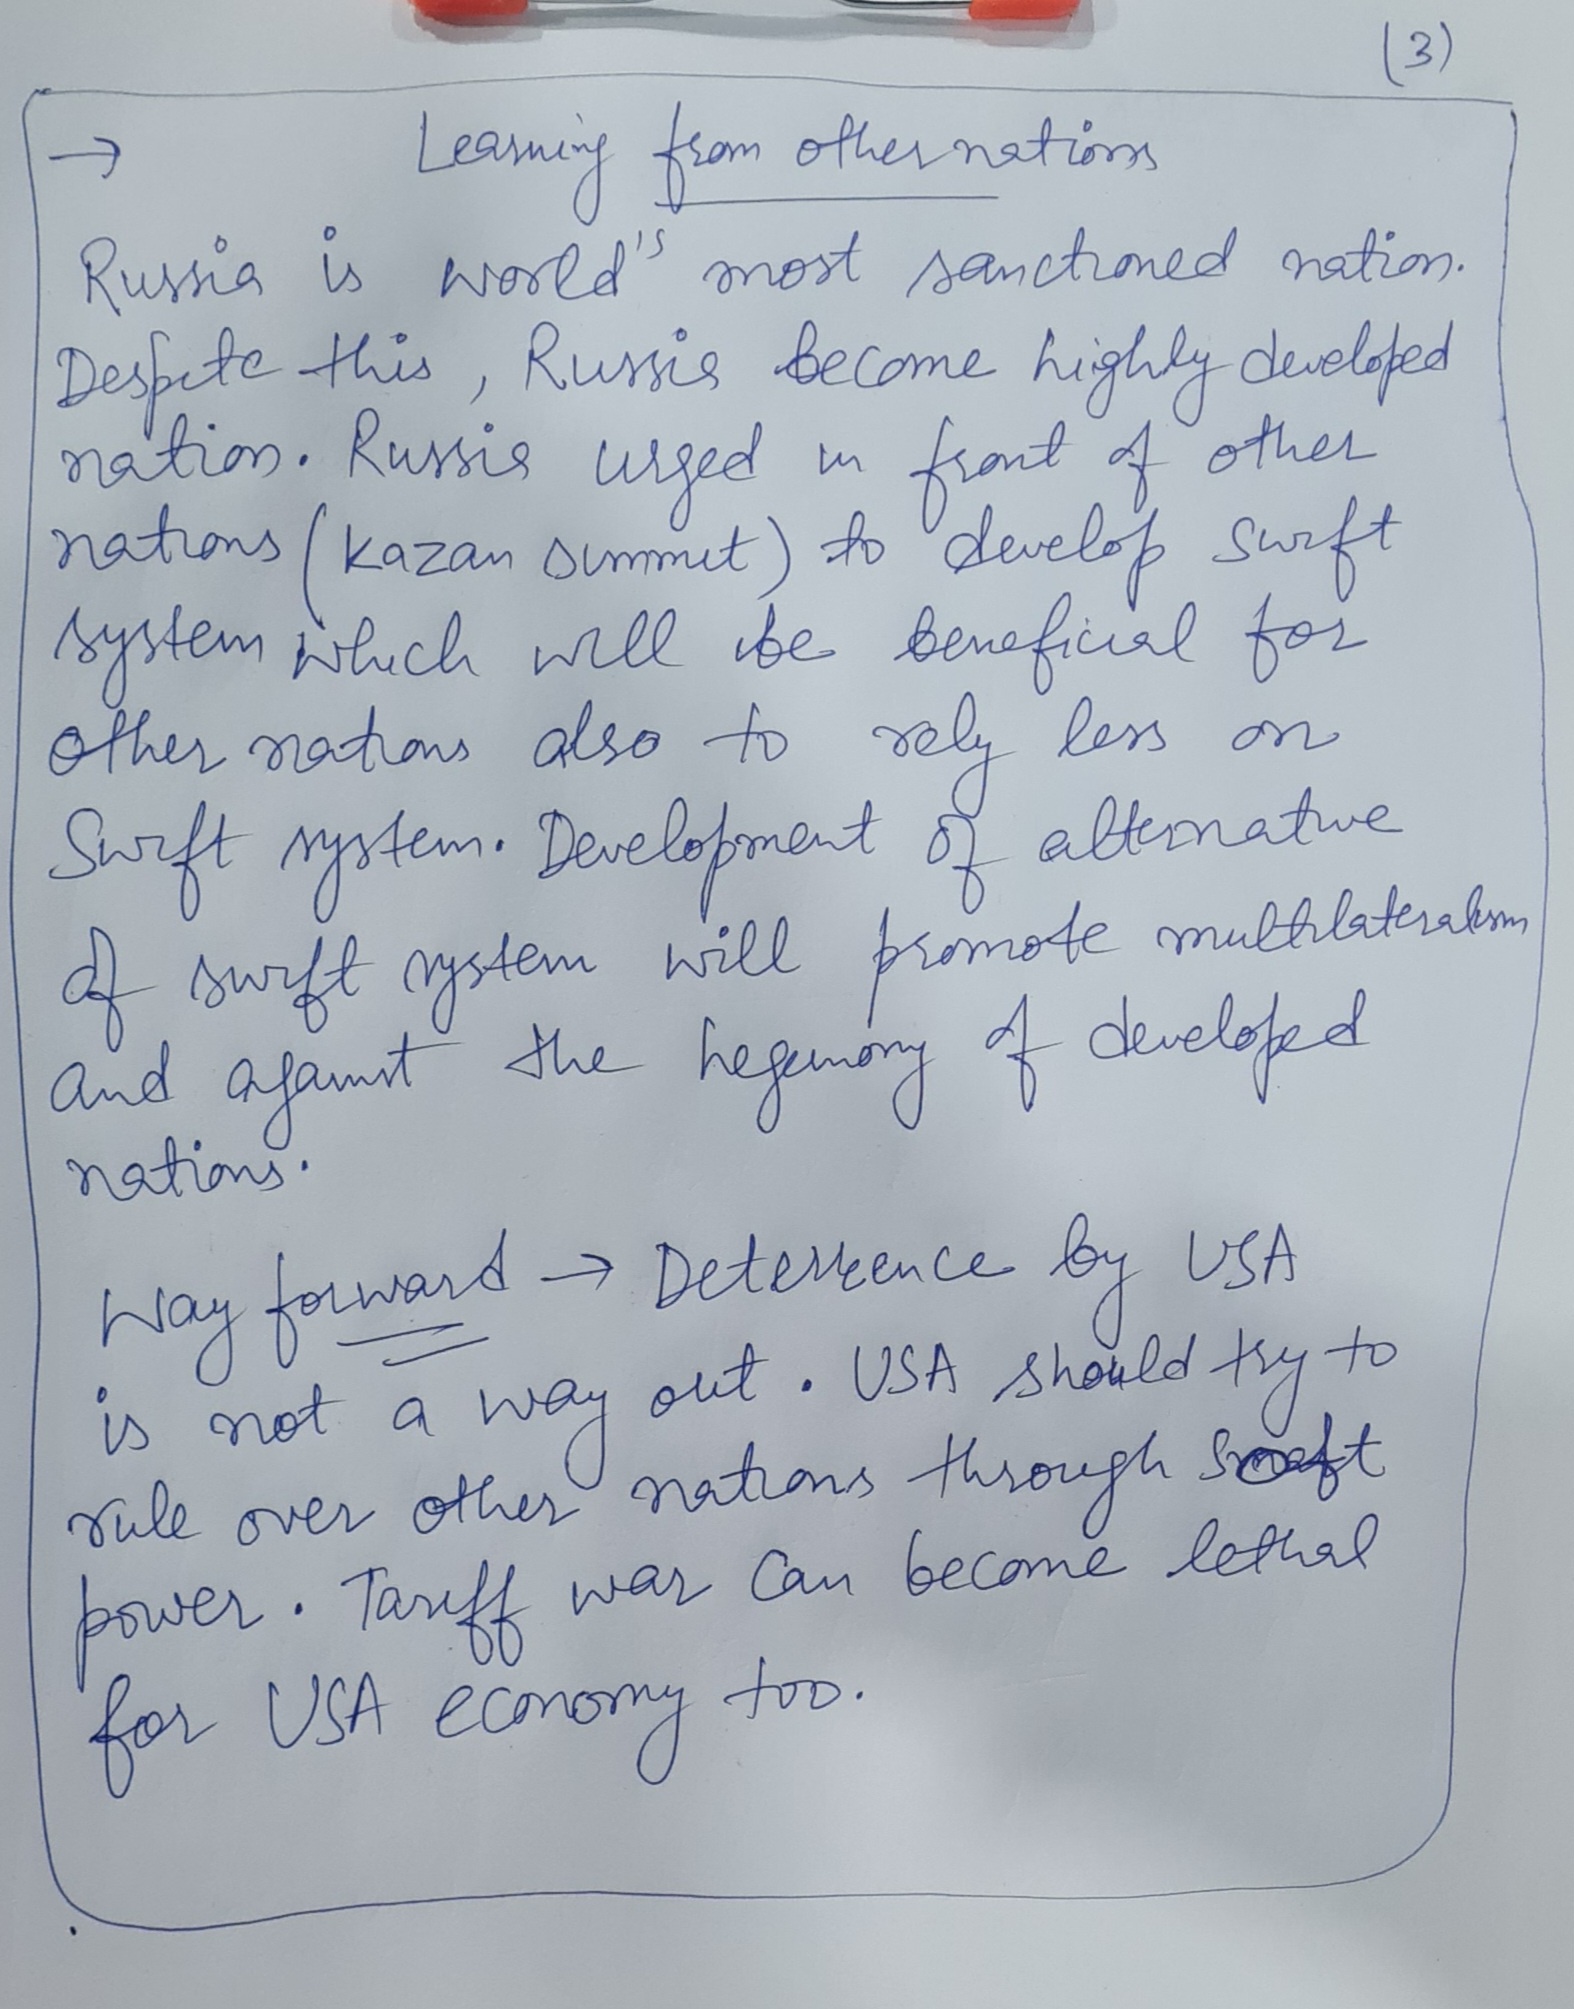 (3)
→ Learning from other nations
Russia is world's most sanctioned nation.
Despite this, Russia become highly developed
nation. Russia urged in front of other
nations (Kazan summit) to develop swift
system which will be beneficial for
other nations also to rely less on
Swift system. Development of alternative
of swift system will promote multilateralism
and against the hegemony of developed
nations.
Way forward → Deterrence by USA
is not a way out. USA should try to
rule over other nations through soft
power. Tariff war can become lethal
for USA economy too.